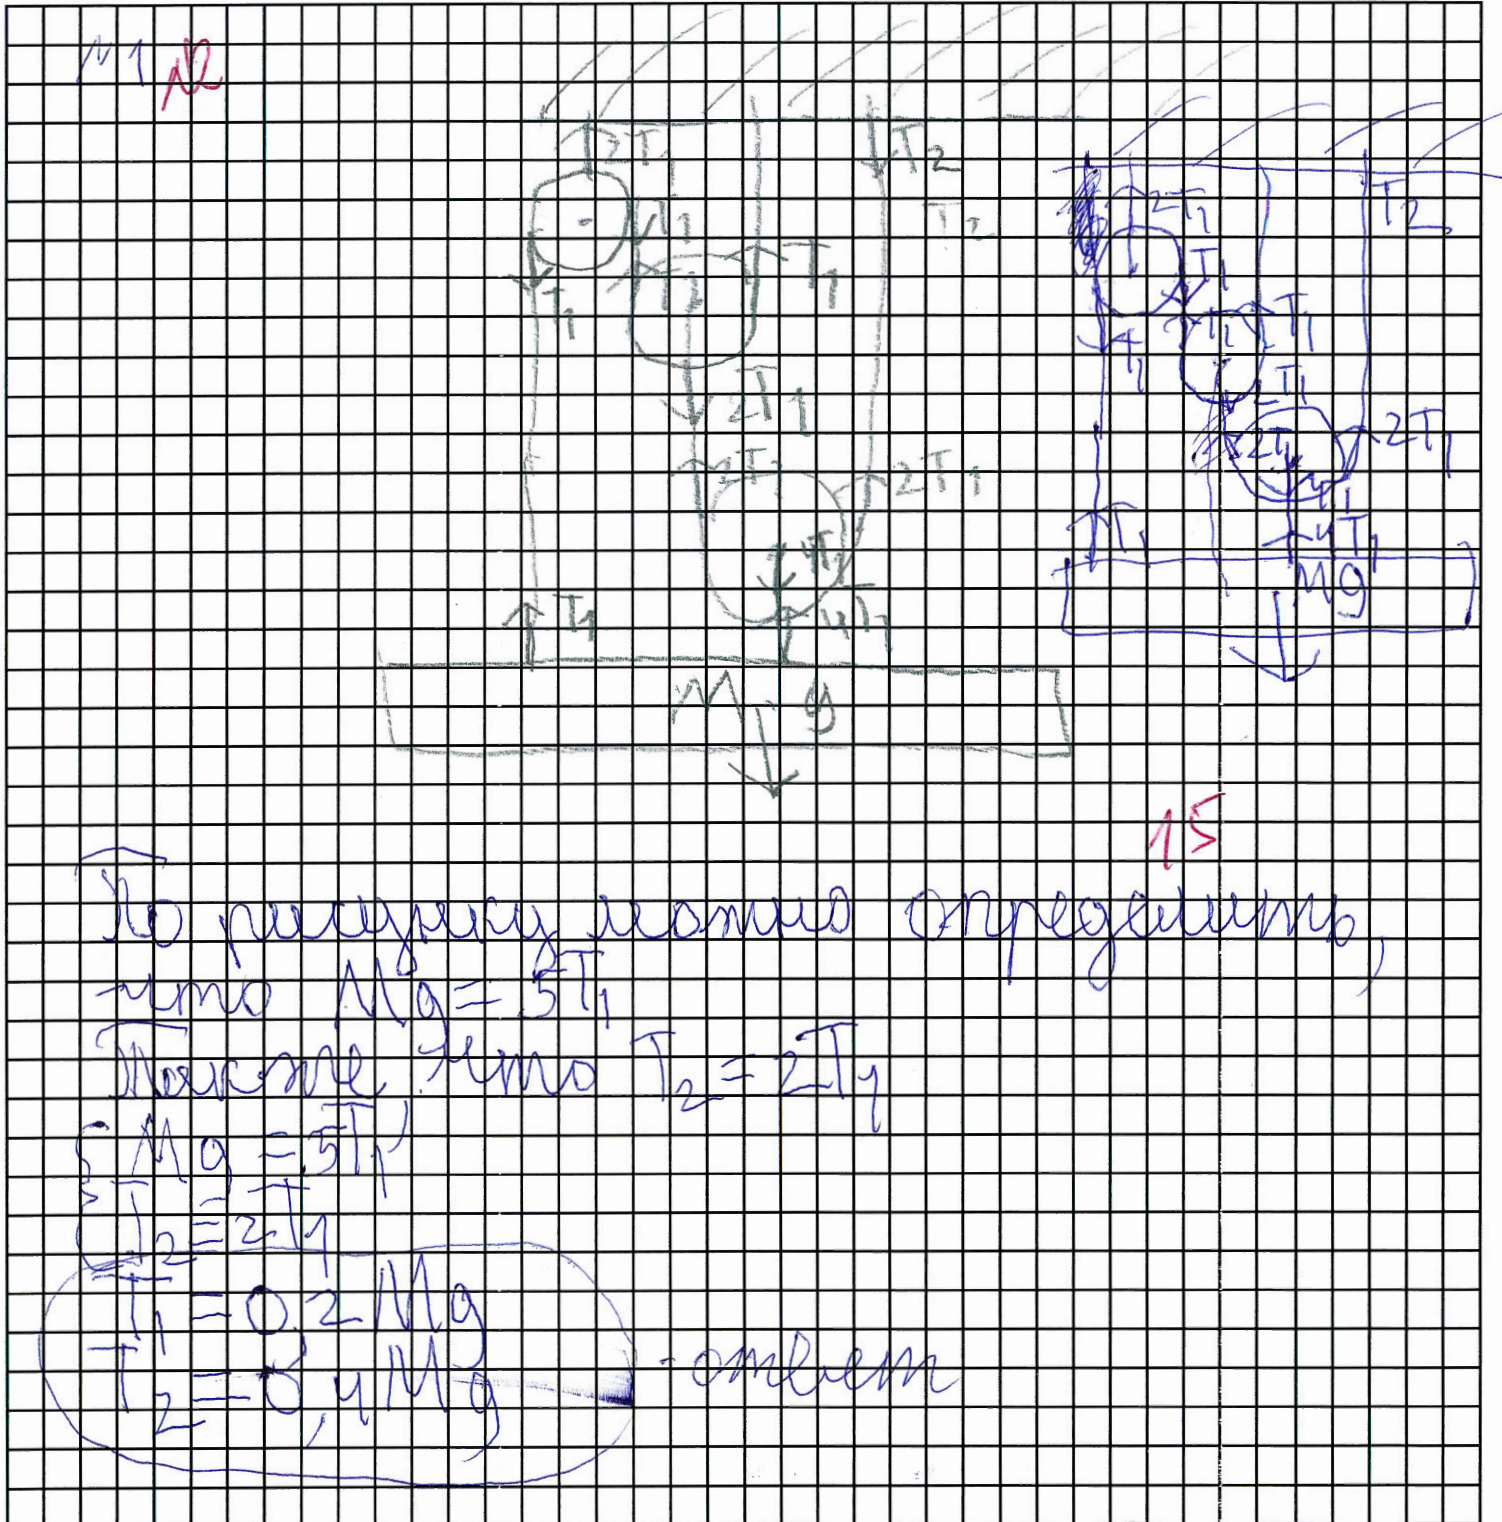 N1 N2
2T₁ T₂
T₁ T₂
T₁ T₁ T₁
2T₁
2T₁ 2T₁
4T₁
T₁ 4T₁
M g
2T₁ T₂
T₁
T₁ T₁ T₁
2T₁
2T₁ 2T₁
4T₁
T₁ 4T₁
Mg
15
По рисунку можно определить,
что Mg = 5T₁
Также, что T₂ = 2T₁
{ Mg = 5T₁
{ T₂ = 2T₁
T₁ = 0,2 Mg
T₂ = 0,4 Mg - ответ